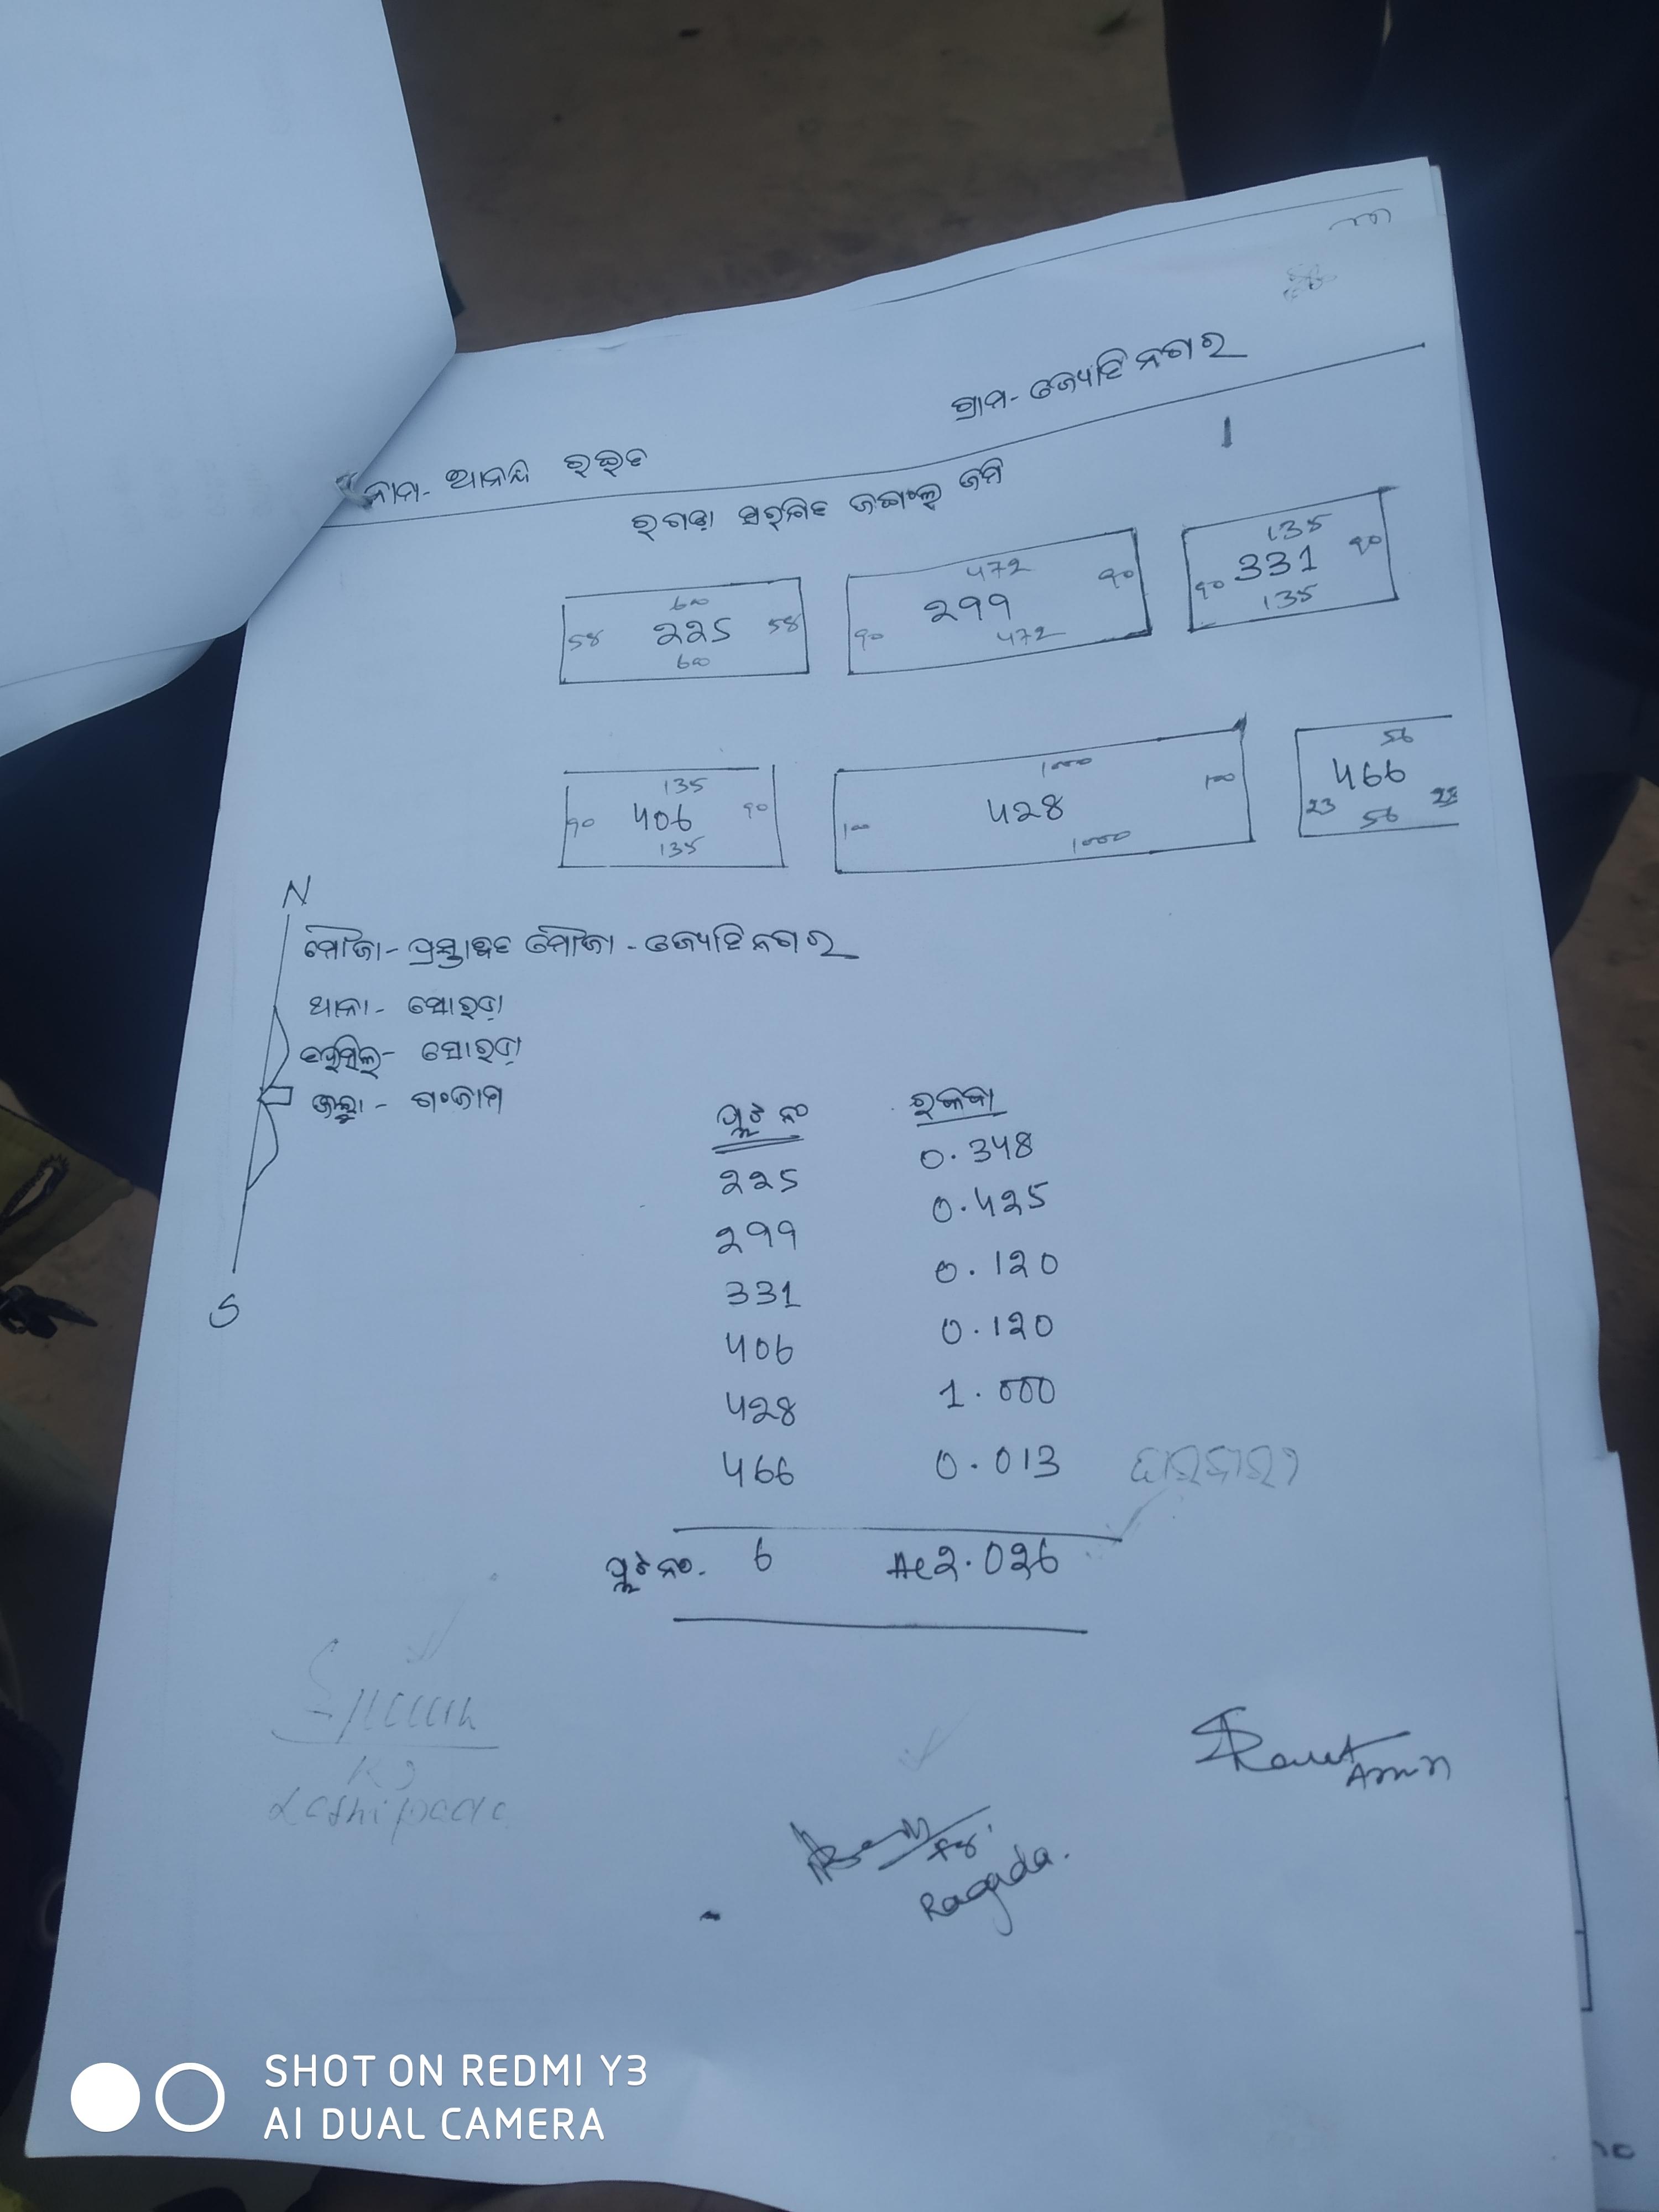 ଗ୍ରାମ - ଜ୍ୟୋତି ନଗର
ନାମ - ଆନନ୍ଦି ରଇତ
ରଗଡ଼ା ସରକ୍ଷିତ ଜଙ୍ଗଲ ଜମି
600
58 225 58
600
472
90 299 90
472
135
90 331 90
135
135
90 406 90
135
1000
100 428 100
1000
56
466
23 56 23
N
ମୌଜା - ପ୍ରସ୍ତାବିତ ମୌଜା - ଜ୍ୟୋତି ନଗର
ଥାନା - ସୋରଡ଼ା
ତହସିଲ - ସୋରଡ଼ା
ଜିଲ୍ଲା - ଗଂଜାମ
S
ପ୍ଲଟ ନଂ ରକବା
225 0.348
299 0.425
331 0.120
406 0.120
428 1.000
466 0.013
ପ୍ଲଟ ନଂ. 6 Ac 2.026
Rout
Amin
Ragada.
SHOT ON REDMI Y3
AI DUAL CAMERA